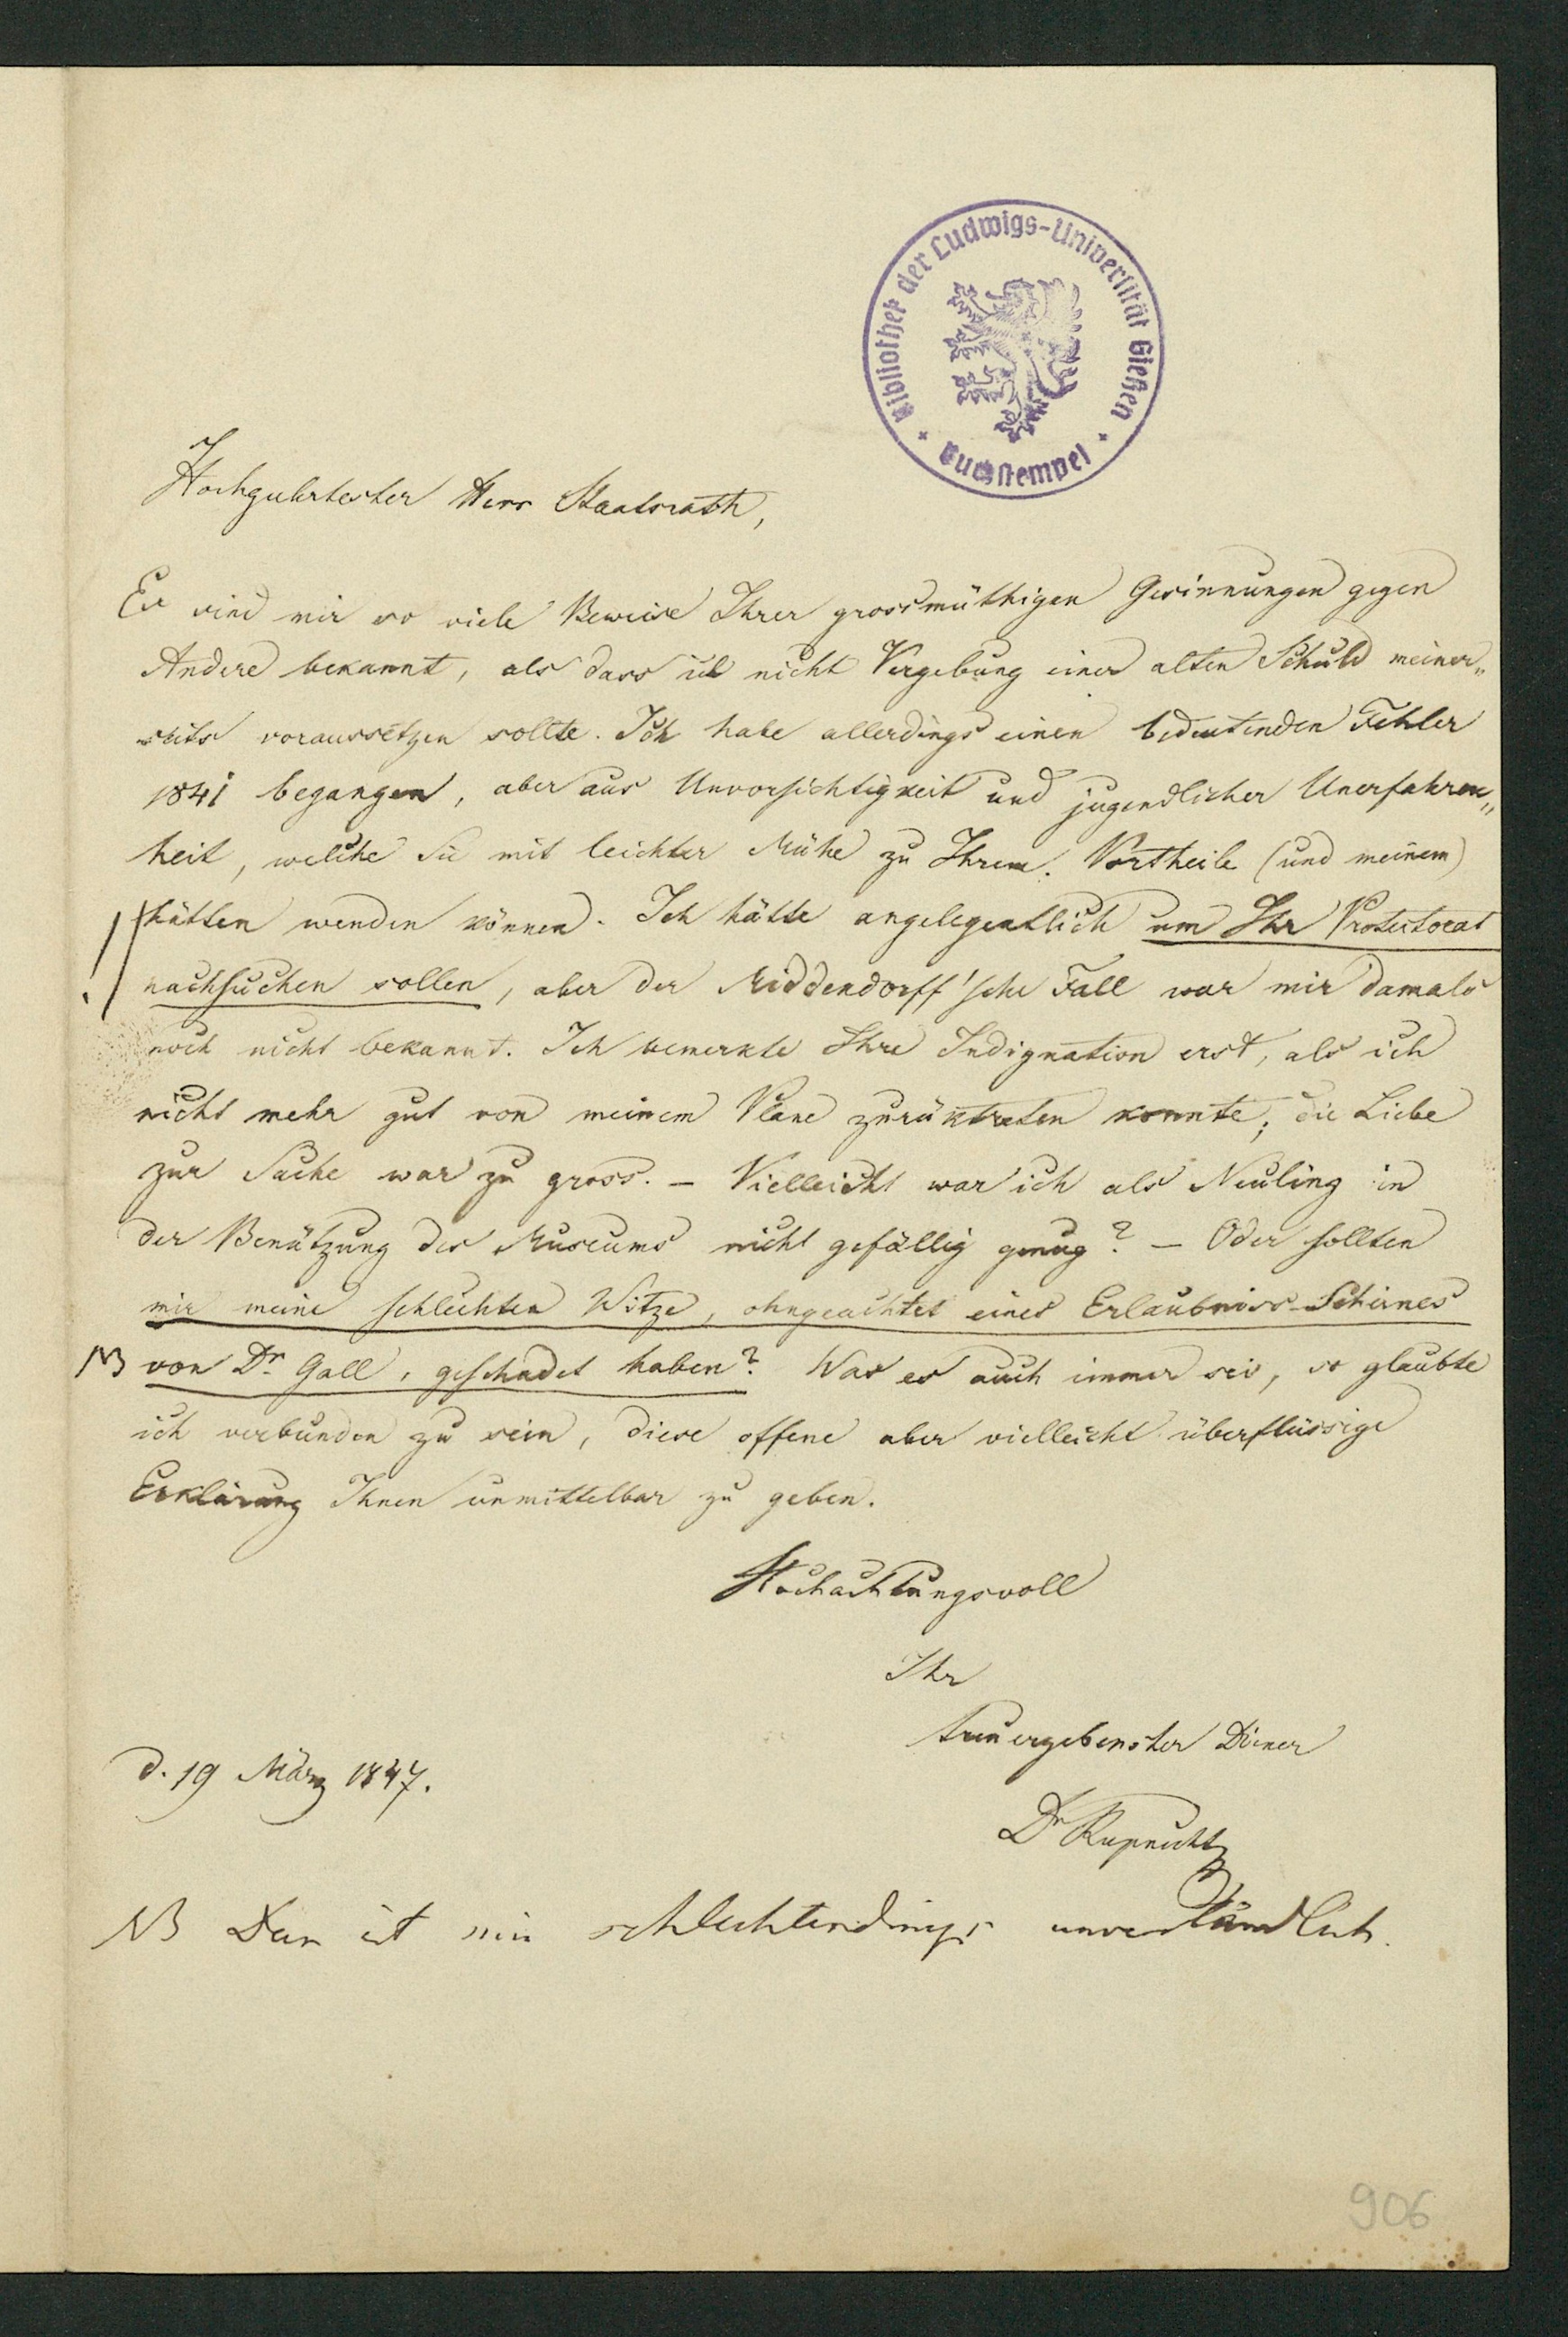 Bibliothek der Ludwigs-Universität Gießen
+ Buchstempel +
Hochgeehrtester Herr Staatsrath,
Es sind mir so viele Beweise Ihrer grossmüthigen Gesinnungen gegen
Andere bekannt, als dass ich nicht Vergebung einer alten Schuld meiner„
seits voraussetzen sollte. Ich habe allerdings einen bedeutenden Fehler
1841 begangen, aber aus Unvorsichtigkeit und jugendlicher Unerfahren„
heit, welche Sie mit leichter Mühe zu Ihrem Vortheile (und meinem)
hätten wenden können. Ich hätte angelegentlich um Ihr Protectorat
nachsuchen sollen, aber der Middendorff'sche Fall war mir damals
noch nicht bekannt. Ich bemerkte Ihre Indignation erst, als ich
nicht mehr gut von meinem Plane zurüktreten konnte; die Liebe
zur Sache war zu gross. – Vielleicht war ich als Neuling in
der Benützung des Museums nicht gefällig genug? – Oder sollten
mir meine schlechten Witze, ohngeachtet eines Erlaubniss-Scheines
NB von Dr. Gall, geschadet haben? Was es auch immer sei, so glaubte
ich verbunden zu sein, diese offene aber vielleicht überflüssige
Erklärung Ihnen unmittelbar zu geben.
Hochachtungsvoll
Ihr
treuergebenster Diener
d. 19 März 1847.
Dr Ruprecht
NB Das ist mir schlechterdings unverständlich.
906